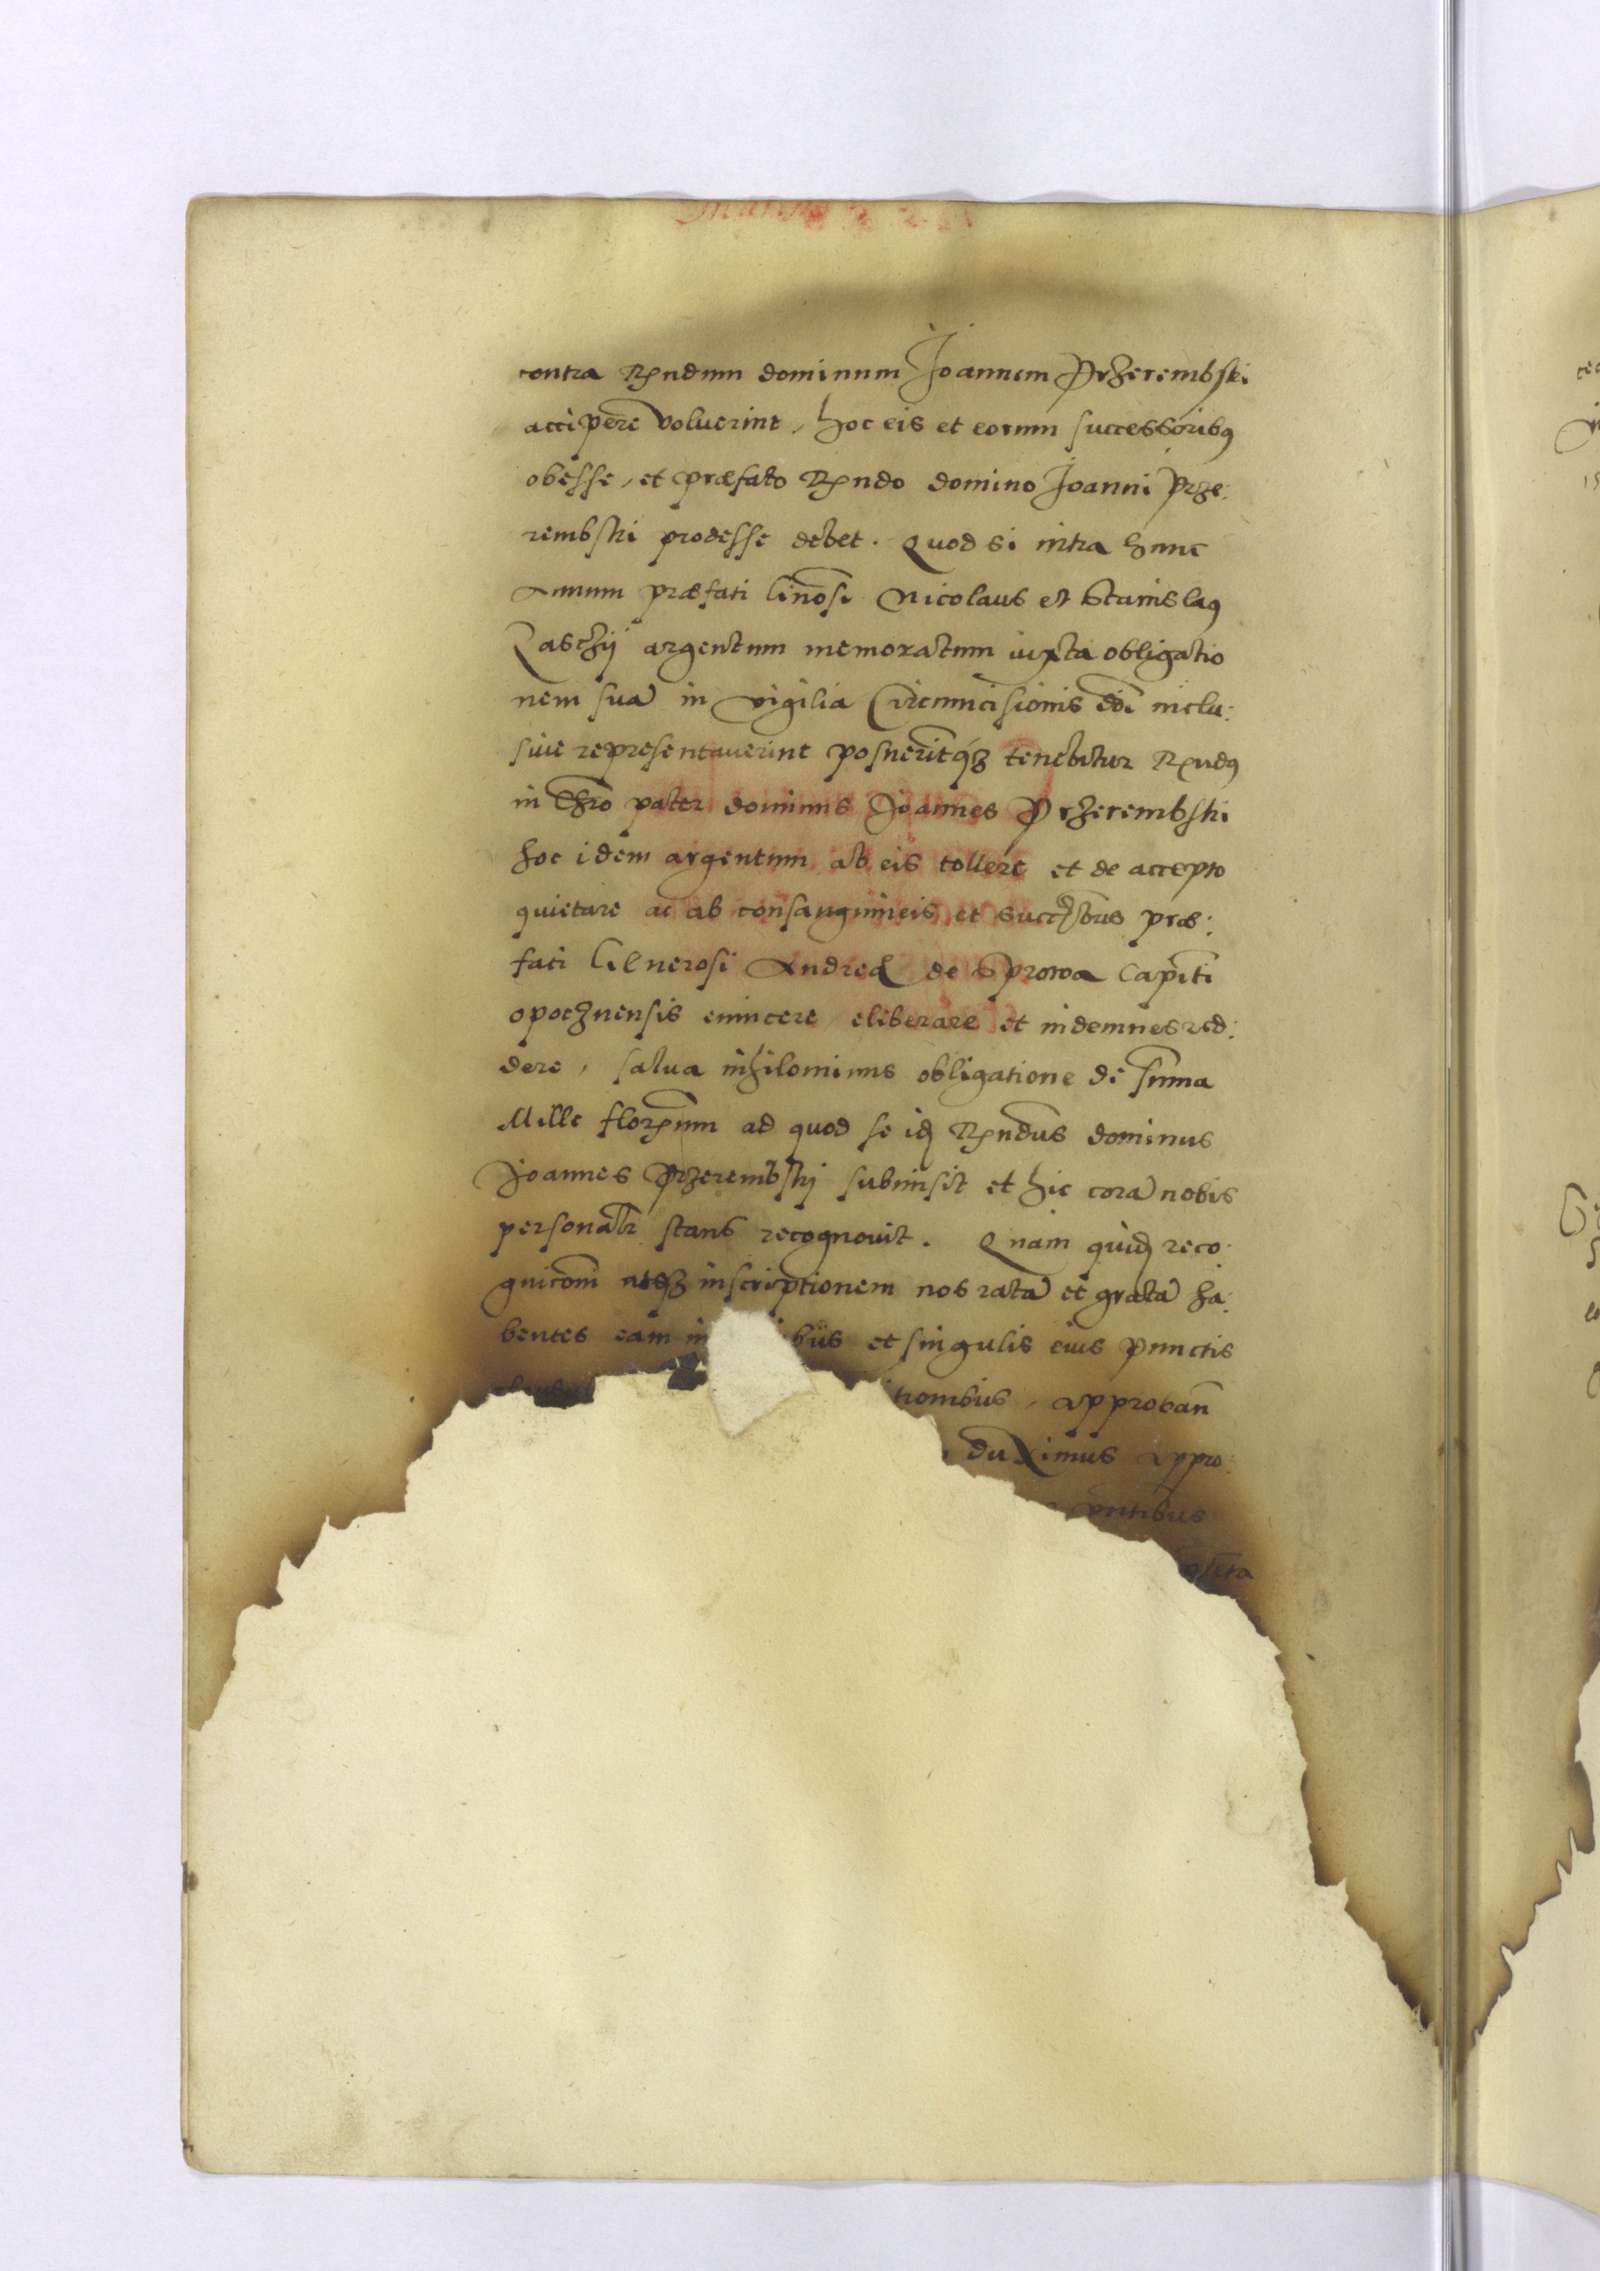 contra Rndum dominum Joannem Przerembski
accipere voluerint, hoc eis et eorum successoribq
obesse, et præfato Rndo domino Joanni Prze:
rembski prodesse debet. Quod si intra hunc
Annum præfati Gnosi Nicolaus et Stanislaq
Laschij argentum memoratum iuxta obligatio
nem suã in vigilia Circumcisionis Dñi inclu:
sive representaverint posuerintqз tenebitur Rndq
in Chro pater dominus Joannes Przerembski
hoc idem argentum ab eis tollere et de accepto
quietare ac ab consanguineis et succbus præ:
fati Generosi Andreæ de Sprowa Capiti
opocznensis evincere eliberare et indemnes red:
dere, salva nihilominus obligatione de suma
Mille florenum ad quod se idẽ Rndus dominus
Joannes Przerembskj submisit et hic corã nobis
personalr stans recognovit. Quam quidẽ reco:
gnitom atqз inscriptionem nos ratã et gratã ha:
bentes eam in bus et singulis eius punctis
tionibus, approbañ
duximus appro:
pntibus